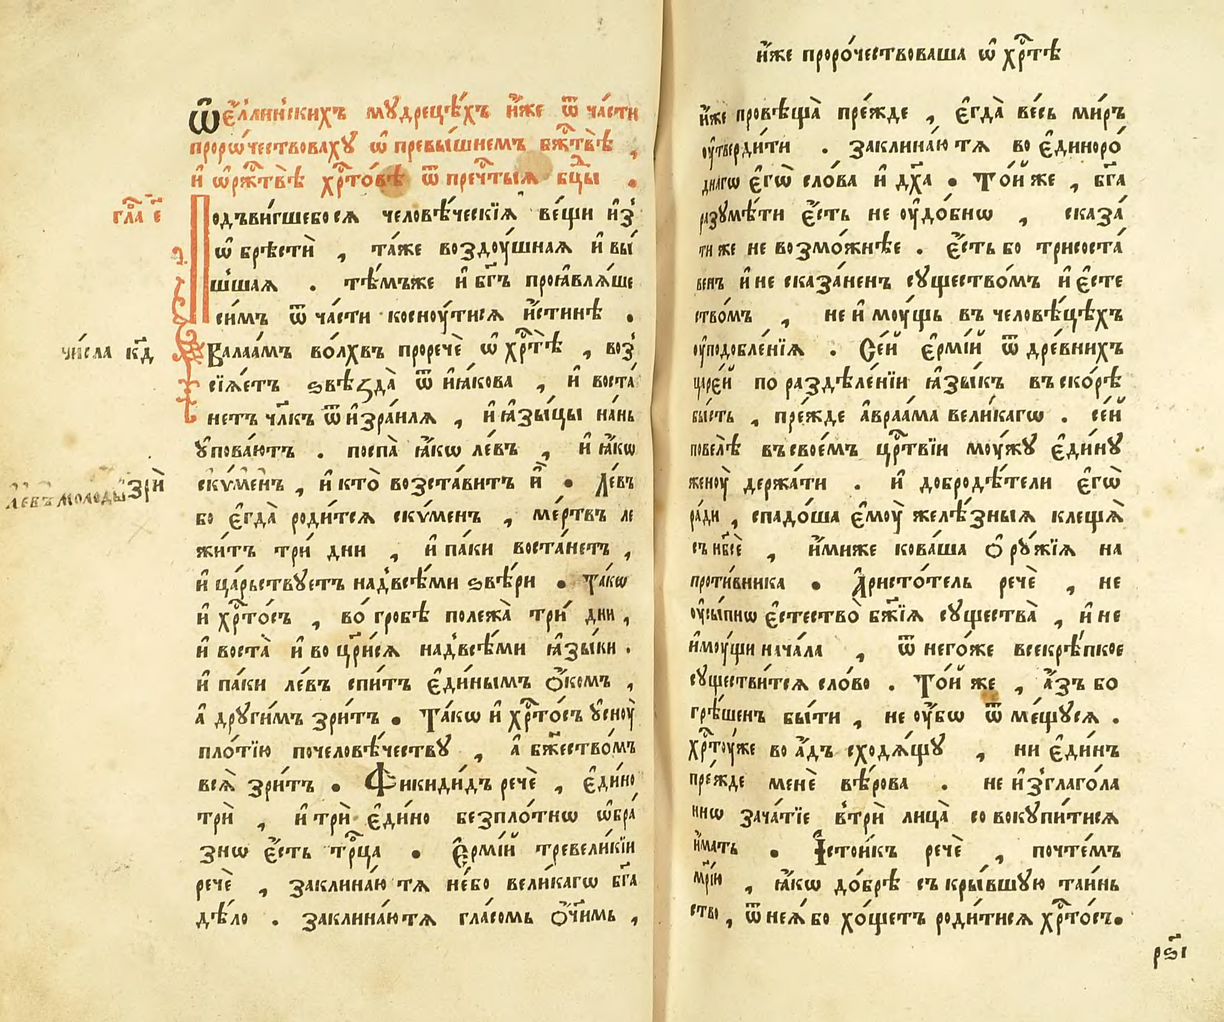 Ѿ є҆́ллинскихъ мꙋдрецѣ́хъ и҆́же ѿ ча́сти
проро́чествовахꙋ ѡ҆ превы́шнемъ бж҃твѣ̀ ,
и҆ ѡ҆ рж҃твѣ̀ хрⷭ҇то́вѣ ѿ преч҃тыѧ бц҃ы .
гла҃ є҃
Подъвигшебосѧ человѣ́ческїѧ ве́щи и҆з̾
ѡ҆брѣстѝ , та́же воздꙋ́шнаѧ и҆ вы́
шшаѧ . тѣ́мъже и҆ бг҃ъ просꙗвлѧ́ше
си́мъ ѿ ча́сти коснꙋ́тисѧ и҆́стинѣ .
чи́сла к҃д
Валаа́мъ во́лхвъ проречѐ ѡ҆ хрⷭ҇тѣ̀ , воз̾
сїѧ́етъ ѕвѣзда̀ ѿ и҆ꙗ́кова , и҆ воста́
нетъ чл҃къ ѿ и҆зра́илѧ , и҆ ꙗ҆зы́цы на́нь
ᲂу҆пова́ютъ . поспа̀ ꙗ҆́кѡ ле́въ , и҆ ꙗ҆́кѡ
ле́въ молоды зрѝ
скѵ́менъ , и҆ кто̀ возста́витъ и҆̀ . Ле́въ
бо є҆гда̀ роди́тсѧ скѵ́менъ , ме́ртвъ ле
жи́тъ трѝ дни , и҆ па́ки воста́нетъ ,
и҆ ца́рьствꙋетъ над̾всѣ́ми ѕвѣ́ри . Та́кѡ
и҆ хрⷭ҇то́съ , во гро́бѣ полежа̀ трѝ дни ,
и҆ воста̀ и҆ воцр҃и́сѧ над̾всѣ́ми ꙗ҆зы́ки .
и҆ па́ки ле́въ спи́тъ є҆ди́нымъ ѻ҆́комъ ,
а҆ дрꙋги́мъ зри́тъ . Та́кѡ и҆ хрⷭ҇то́съ ᲂу҆снꙋ̀
пло́тїю почеловѣ́чествꙋ , а҆ бж҃ество́мъ
всѧ̀ зри́тъ . Фикиди́дъ речѐ , є҆ди́но
трѝ , и҆ трѝ є҆ди́но безпло́тнѡ ѡ҆бра́
знѡ є҆́сть трⷪ҇ца . Є҆рмі́й тревели́кїи
речѐ , заклина́ю тѧ не́бо вели́кагѡ бг҃а
дѣ́ло . заклина́ютѧ гла́сомъ ѻ҆́чимъ ,
и҆́же проро́чествоваша ѡ҆ хрⷭ҇тѣ̀
и҆́же провѣща̀ пре́жде , є҆гда̀ ве́сь ми́ръ
ᲂу҆твердѝти . заклина́ю тѧ во є҆диноро́
днагѡ є҆гѡ̀ сло́ва и҆ дх҃а . То́й же , бг҃а
разꙋмѣ́ти є҆́сть не ᲂу҆до́бнѡ , сказа́
ти же не возмо́жнѣе . є҆́сть бо трисоста́
венъ и҆ не сказа́ненъ сꙋщество́мъ и҆ є҆сте
ство́мъ , не и҆мꙋ́щь въ человѣ́цѣхъ
ᲂу҆подобле́нїѧ . Се́й є҆рмі́й ѿ дре́внихъ
царе́й по раздѣле́нїи ꙗ҆зы́къ въско́рѣ
бы́сть , пре́жде а҆враа́ма вели́кагѡ . се́й
повелѣ̀ въ свое́мъ црⷭ҇твїи мꙋ́жꙋ є҆ди́нꙋ
женꙋ̀ держа́ти . и҆ добродѣ́тели є҆гѡ̀
ра́ди , спадо́ша є҆мꙋ̀ желѣ́зныѧ клещѧ̀
съ нб҃сѐ , и҆́миже кова́ша ѻ҆рꙋ́жїѧ на
проти́вника . А҆ристо́тель речѐ , не
ᲂу҆сы́пнѡ є҆стество̀ бж҃їѧ сꙋщества̀ , и҆ не
и҆мꙋ́щи нача́ла , ѿ него́же всекрѣ́пкое
сꙋществи́тсѧ сло́во . То́й же , а҆́зъ бо
грѣ́шенъ бы́ти , не ᲂу҆́бѡ ѿме́щꙋсѧ .
хрⷭ҇тꙋ́же во а҆́дъ сходѧ́щꙋ , ни є҆ди́нъ
пре́жде менѐ вѣ́рова . не и҆з̾глаго́ла
ннѡ зача́тїе в̾трѝ лица̀ совокупи́тисѧ
и҆́мать . І҆сто́икъ речѐ , почте́мъ
мр҃і́ю , ꙗ҆́кѡ до́брѣ съкры́вшꙋю та́инь
ство , ѿ неѧ́ бо хо́щетъ роди́тисѧ хрⷭ҇то́съ.
рѕ҃і